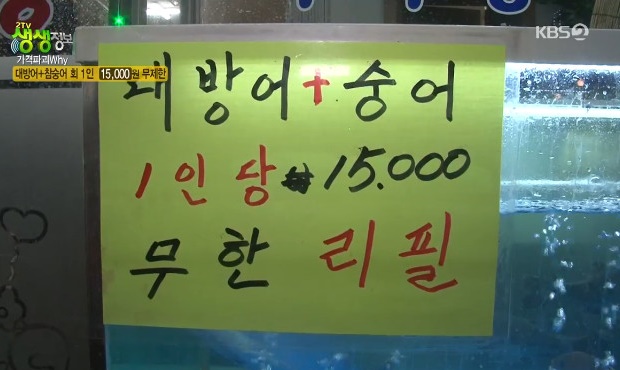 2TV
생생정보
가격파괴Why
대방어+참숭어 회 1인 15,000원 무제한
KBS2
대방어+숭어
1인당 ₩15.000
무한 리필